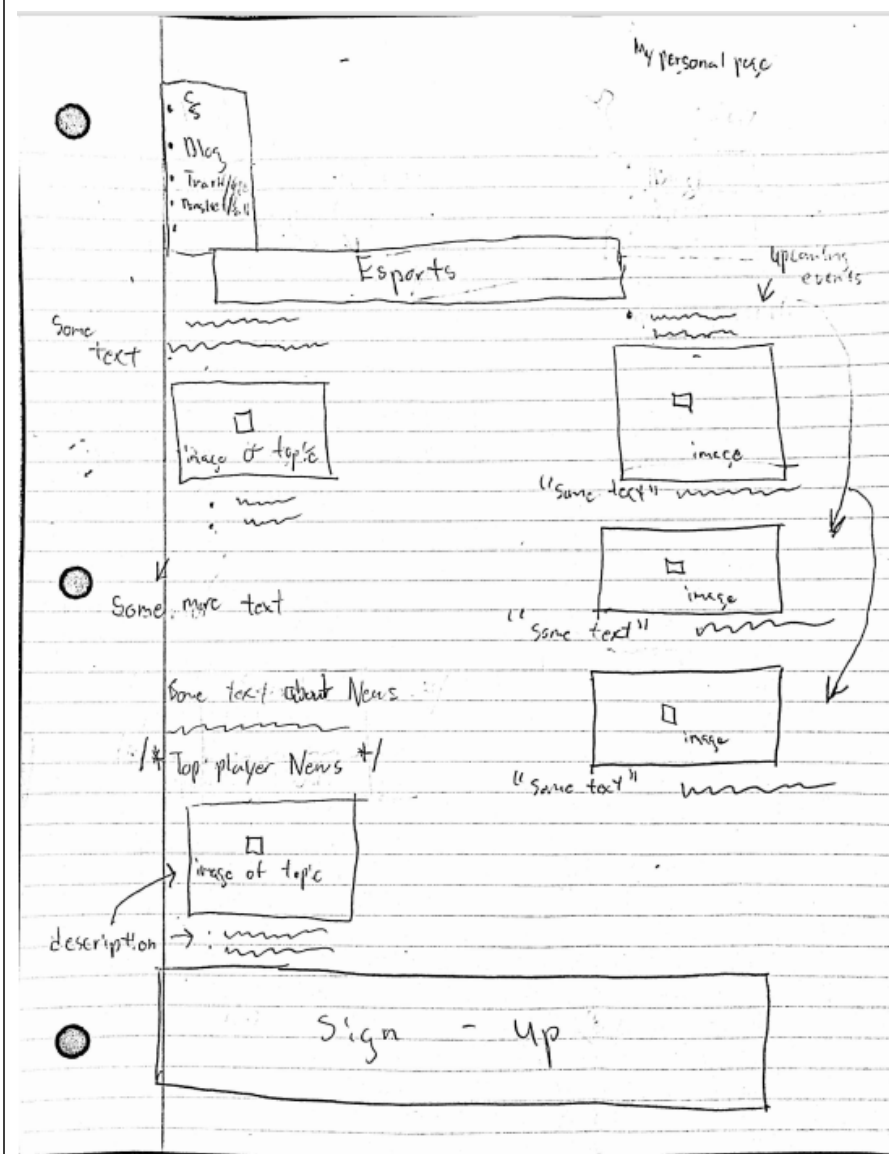 My personal page
Blog
Esports
Upcoming
events
Some
text
image of topic
image
"Some text"
Some more text
image
"Some text"
Some text about News
/* Top player News */
image
"Some text"
image of topic
description
Sign - up